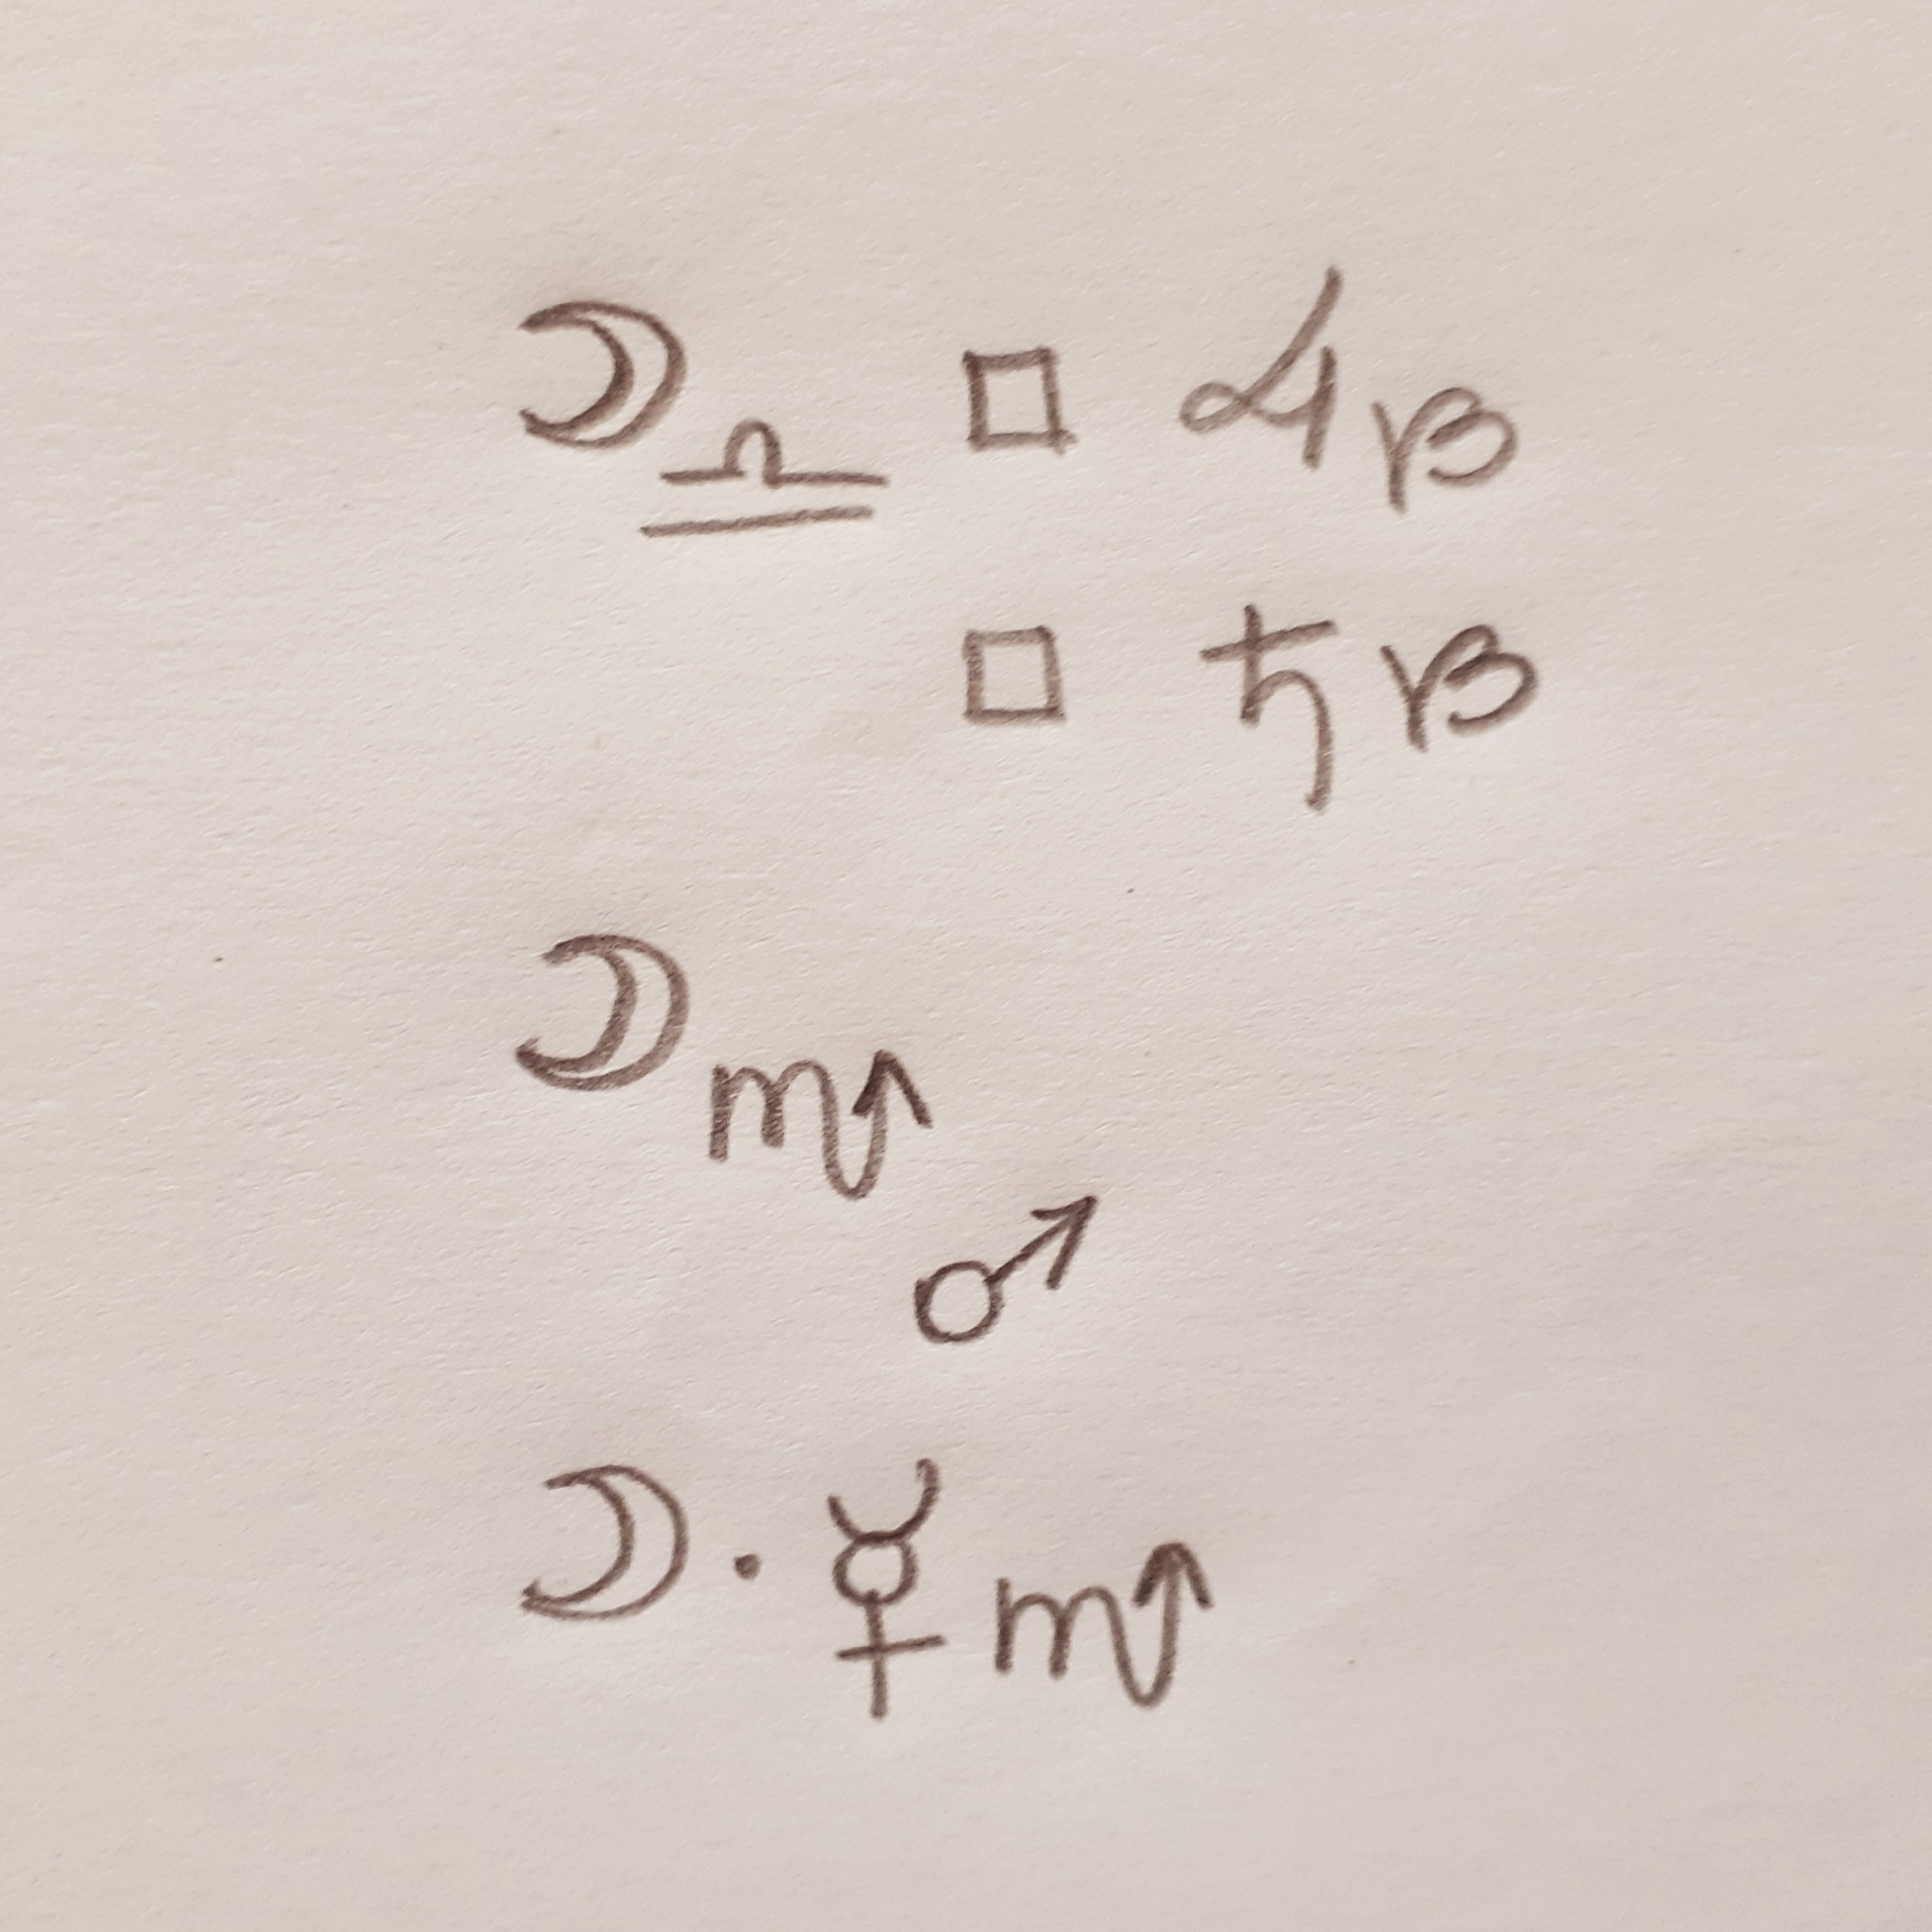 ☽♎ □ ♃♑
□ ♄♑
☽♏
♂
☽·☿♏